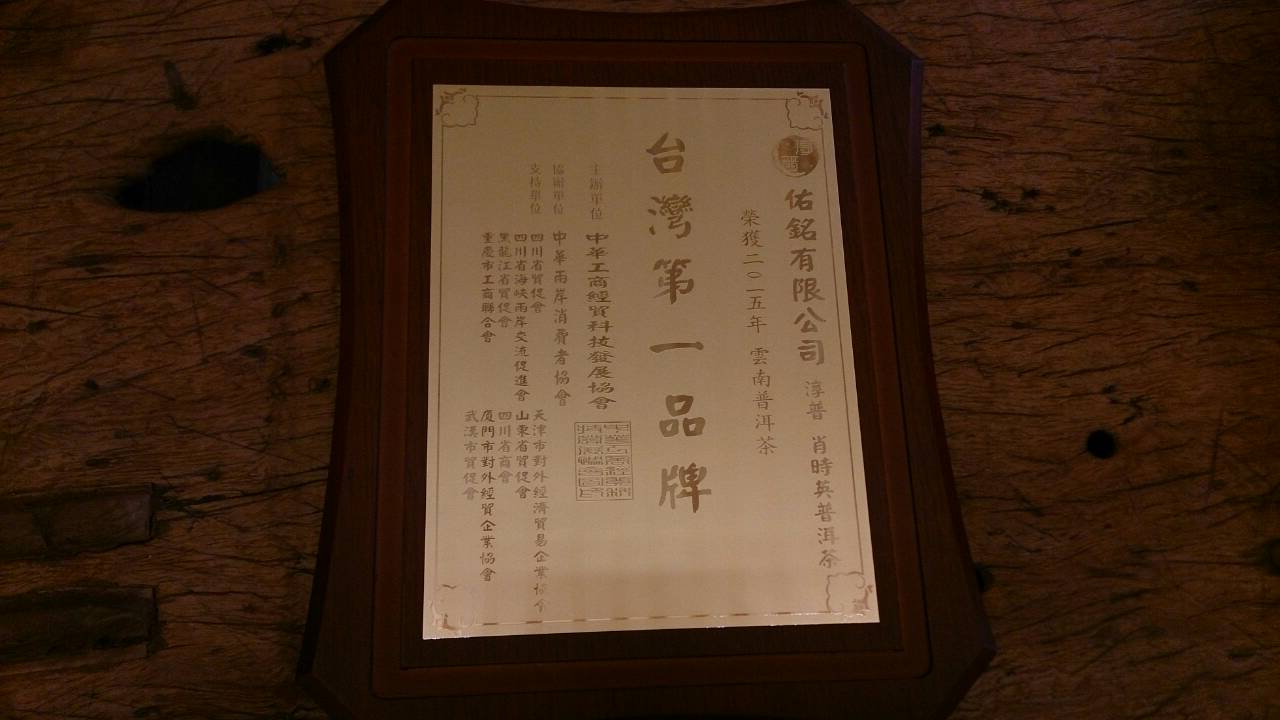 佑銘有限公司 淳普 肖時英普洱茶
榮獲二〇一五年 雲南普洱茶
台灣第一品牌
主辦單位 中華工商經貿科技發展協會
協辦單位 中華兩岸消費者協會
支持單位 四川省貿促會 天津市對外經濟貿易企業協會
四川省海峽兩岸交流促進會 山東省貿促會
黑龍江省貿促會 四川省商會
重慶市工商聯合會 廈門市對外經貿企業協會
武漢市貿促會